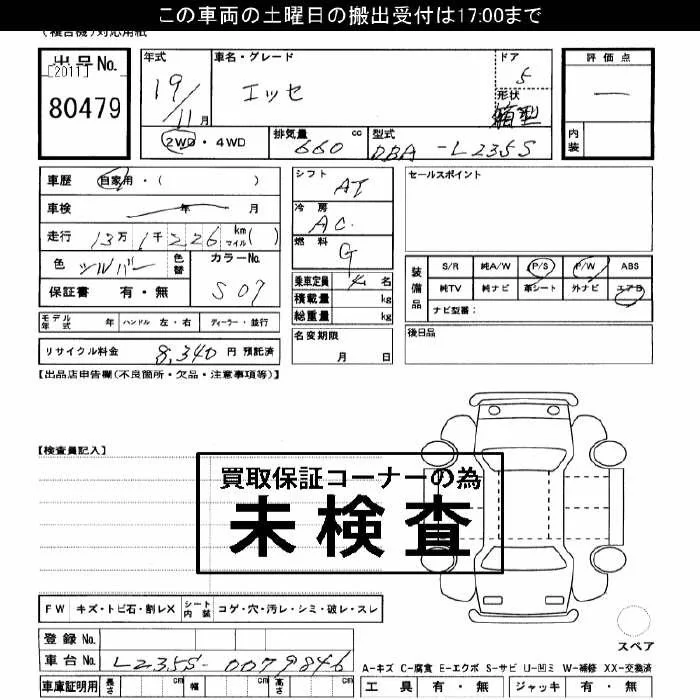 この車両の土曜日の搬出受付は17:00まで
(複合機)対応用紙
出品No.
[2011]
80479
年式 19/11月
車名・グレード エッセ
ドア 5
形状 箱型
2WD・4WD
排気量 660 cc
型式 DBA-L235S
評価点 ー
内装
車歴 自家用・( )
車検 年 月
走行 13万1千226 km マイル( )
色 シルバー 色替
カラーNo. S07
保証書 有・無
シフト AT
冷房 AC
燃料 G
乗車定員 4名
積載量 kg
総重量 kg
名変期限 月 日
セールスポイント
装備品 S/R 純A/W P/S P/W ABS
純TV 純ナビ 革シート 外ナビ エアB
ナビ型番:
後日品
モデル年式 年 ハンドル 左・右 ディーラー・並行
リサイクル料金 8,340 円 預託済
【出品店申告欄(不良箇所・欠品・注意事項等)】
【検査員記入】
買取保証コーナーの為
未検査
FW キズ・トビ石・割レX シート内装 コゲ・穴・汚レ・シミ・破レ・スレ
スペア
登録No.
車台No. L235S-0079846
A-キズ C-腐食 E-エクボ S-サビ U-凹ミ W-補修 XX-交換済
車庫証明用 長さ cm 幅 cm 高さ cm
工具 有・無 ジャッキ 有・無